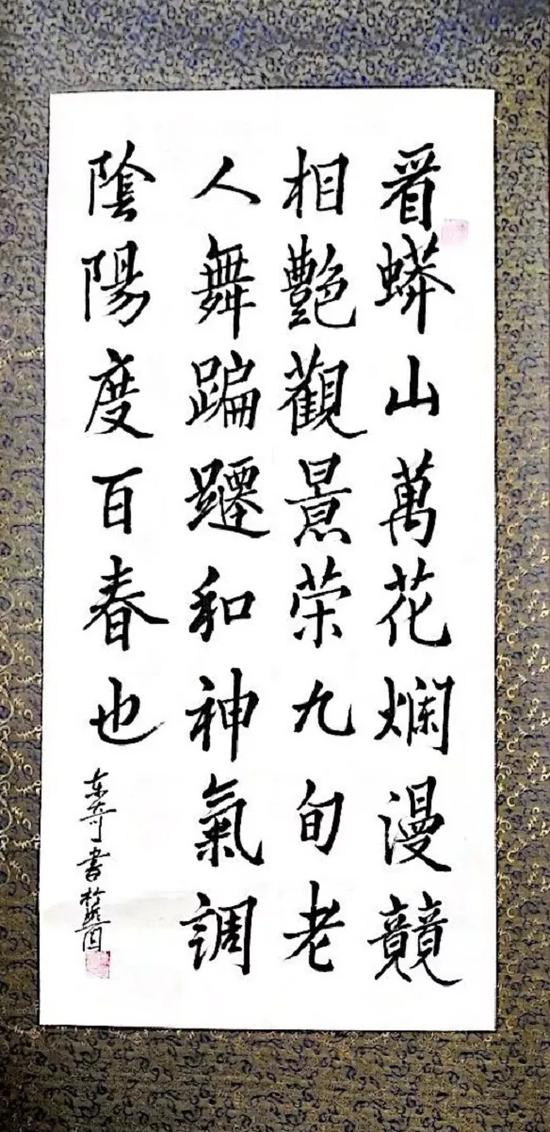 看蟒山萬花爛漫競
相艷觀景荣九旬老
人舞蹁躚和神氣調
陰陽度百春也
东奇書於